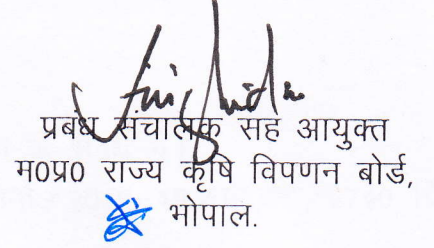 प्रबंध संचालक सह आयुक्त
म0प्र0 राज्य कृषि विपणन बोर्ड,
भोपाल.